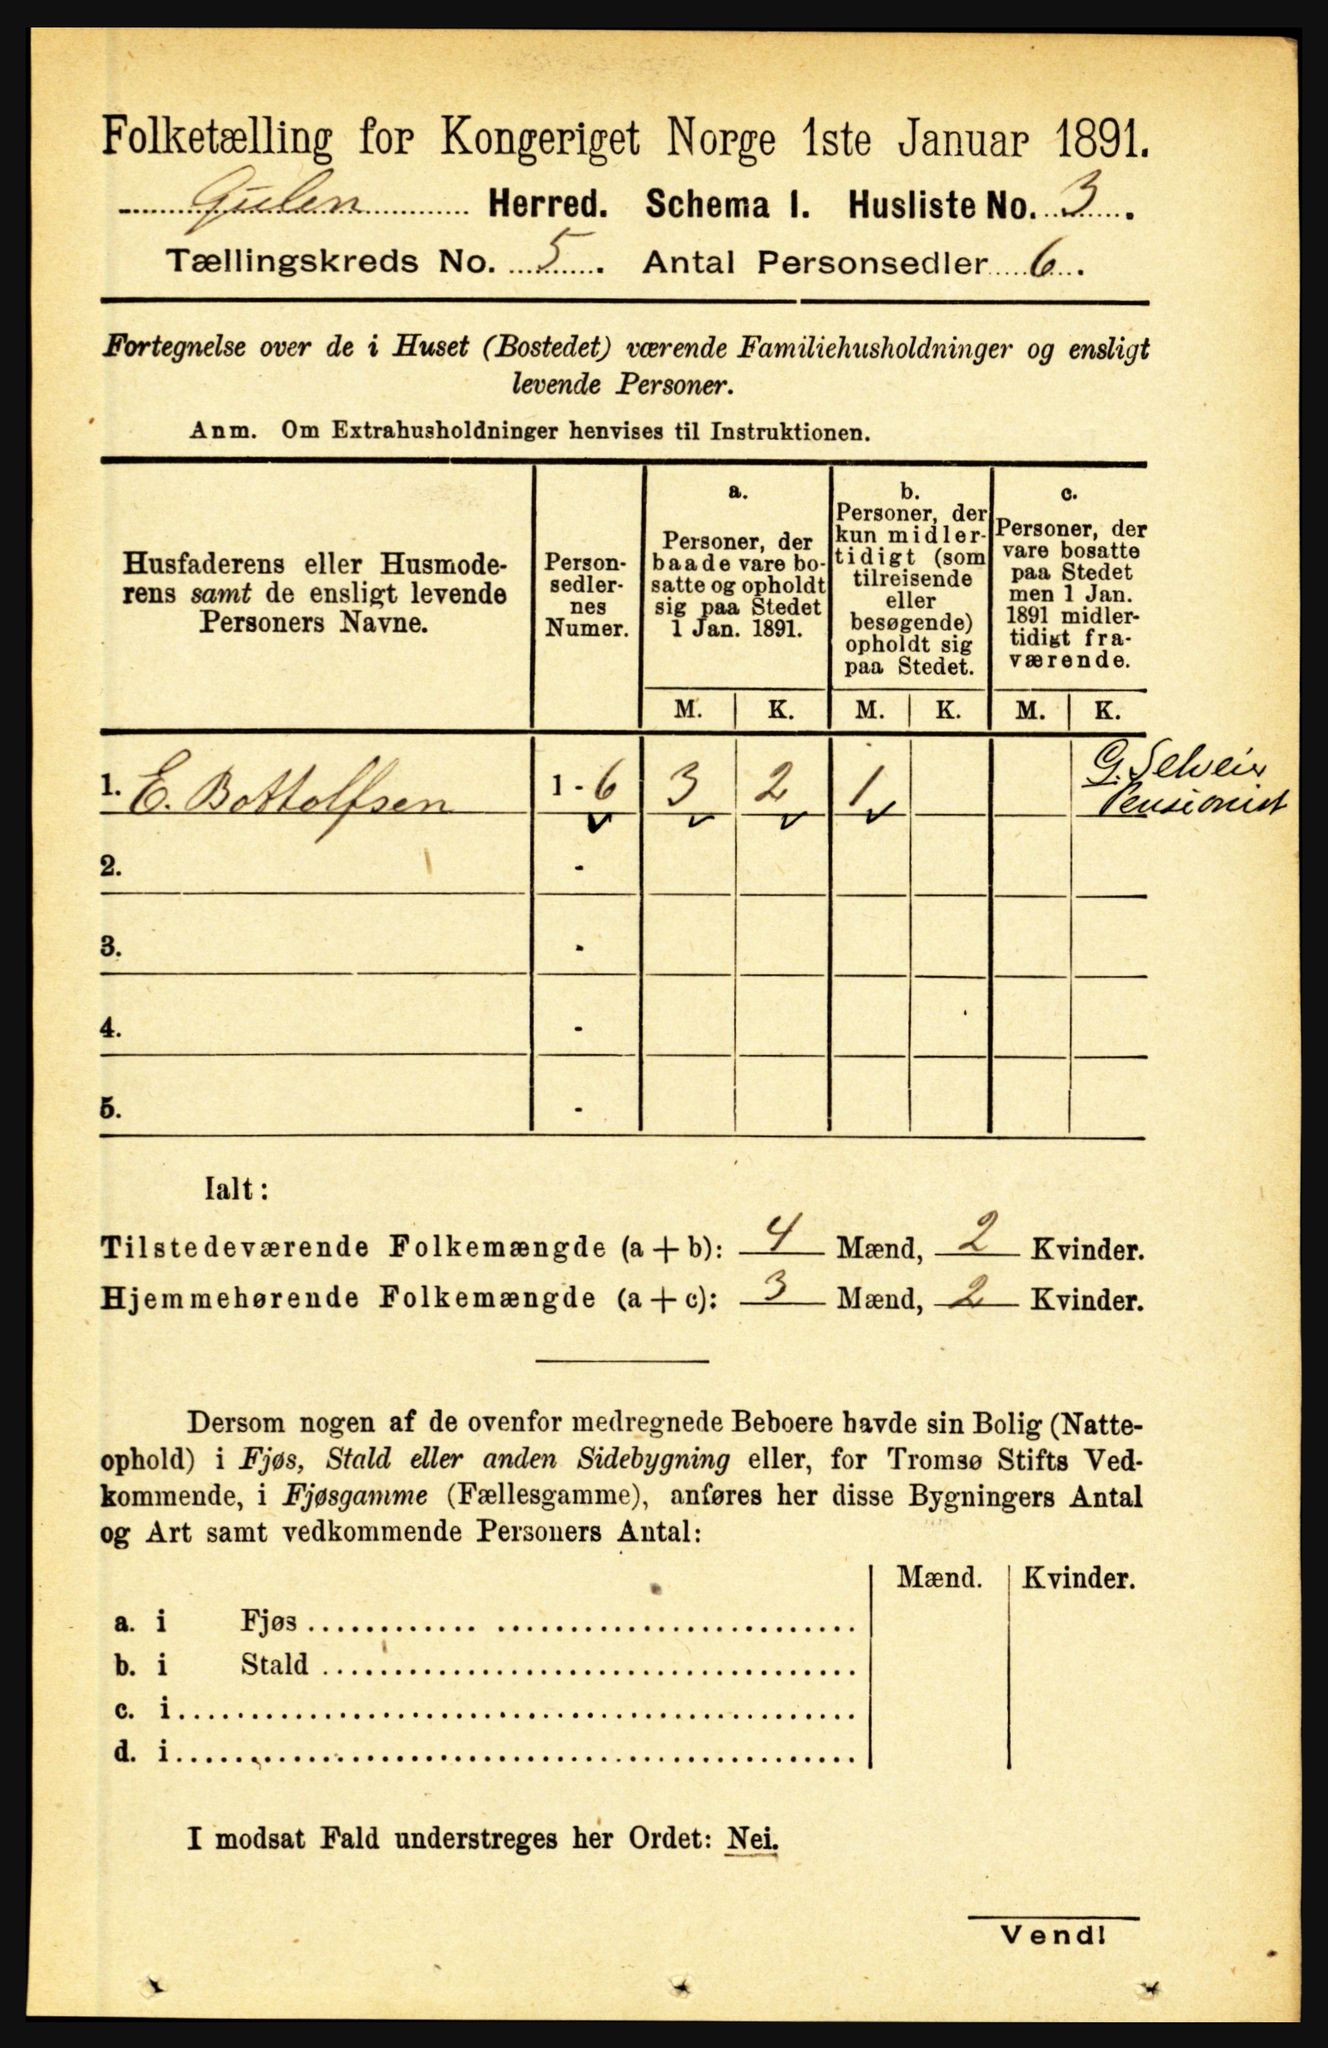 Folketælling for Kongeriget Norge 1ste Januar 1891.
Gulen Herred. Schema I. Husliste No. 3.
Tællingskreds No. 5. Antal Personsedler 6.
Fortegnelse over de i Huset (Bostedet) værende Familiehusholdninger og ensligt
levende Personer.
Anm. Om Extrahusholdninger henvises til Instruktionen.
Husfaderens eller Husmode-
rens samt de ensligt levende
Personers Navne.
Person-
sedler-
nes
Numer.
a.
Personer, der
baade vare bo-
satte og opholdt
sig paa Stedet
1 Jan. 1891.
b.
Personer, der
kun midler-
tidigt (som
tilreisende
eller
besøgende)
opholdt sig
paa Stedet.
c.
Personer, der
vare bosatte
paa Stedet
men 1 Jan.
1891 midler-
tidigt fra-
værende.
M. K. M. K. M. K.
1. E. Bottolfsen 1 - 6 3 2 1 G.
Pensionist
2. -
3. -
4. -
5. -
Ialt:
Tilstedeværende Folkemængde (a + b): 4 Mænd, 2 Kvinder.
Hjemmehørende Folkemængde (a + c): 3 Mænd, 2 Kvinder.
Dersom nogen af de ovenfor medregnede Beboere havde sin Bolig (Natte-
ophold) i Fjøs, Stald eller anden Sidebygning eller, for Tromsø Stifts Ved-
kommende, i Fjøsgamme (Fællesgamme), anføres her disse Bygningers Antal
og Art samt vedkommende Personers Antal:
Mænd. Kvinder.
a. i Fjøs
b. i Stald
c. i
d. i
I modsat Fald understreges her Ordet: Nei.
Vend!